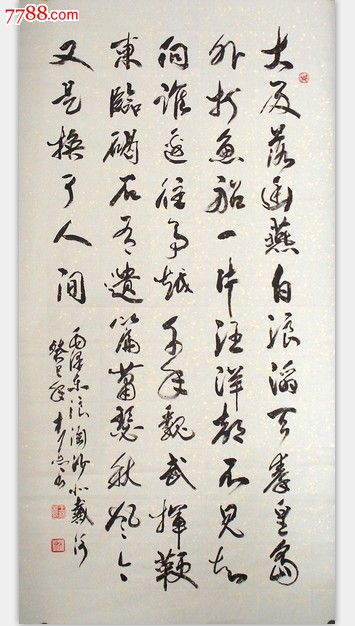 7788.com
大雨落幽燕白浪滔天秦皇島
外打魚船一片汪洋都不見知
向誰邊往事越千年魏武揮鞭
東臨碣石有遺篇蕭瑟秋風今
又是換了人间
毛澤東浪淘沙北戴河
癸巳年